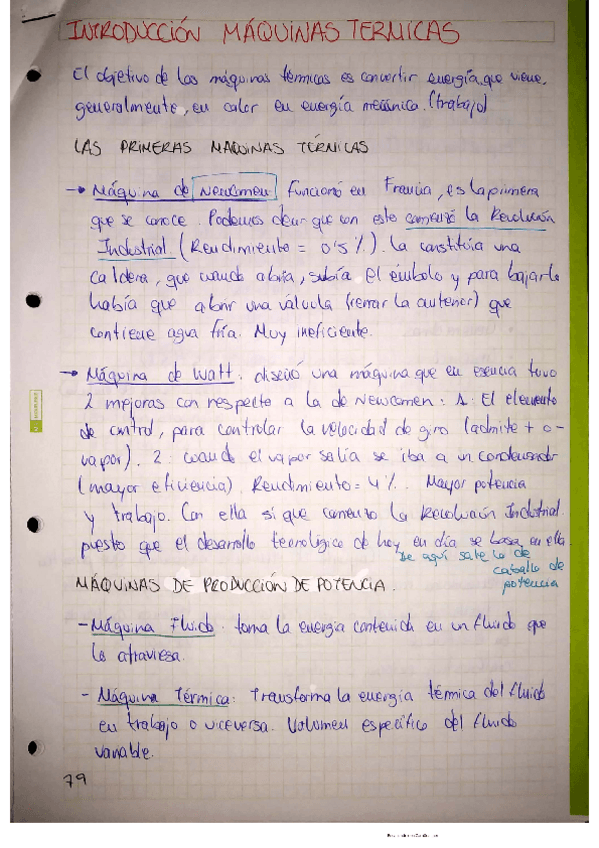 INTRODUCCIÓN MÁQUINAS TERMICAS
El objetivo de las máquinas térmicas es convertir energía, que viene,
generalmente, en calor en energía mecánica. (trabajo)
LAS PRIMERAS MAQUINAS TÉRMICAS
→ Máquina de Newcomen funcionó en Francia, es la primera
que se conoce. Podemos decir que con esto comenzó la Revolución
Industrial. (Rendimiento = 0'5 %). La constituía una
caldera, que cuando abría, subía el émbolo y para bajarle
había que abrir una válvula (cerrar la anterior) que
contiene agua fría. Muy ineficiente.
→ Máquina de Watt. diseñó una máquina que en esencia tuvo
2 mejoras con respecto a la de Newcomen: 1: El elemento
de control, para controlar la velocidad de giro (admite + o -
vapor). 2: cuando el vapor salía se iba a un condensador
(mayor eficiencia). Rendimiento = 4%. Mayor potencia
y trabajo. Con ella si que comento la Revolución Industrial.
puesto que el desarrollo tecnológico de hoy en día se basa en ella
De aquí sale lo de
caballo de
potencia
MÁQUINAS DE PRODUCCIÓN DE POTENCIA.
- Máquina Fluido. toma la energía contenida en un fluido que
lo atraviesa.
- Máquina Térmica: Transforma la energía térmica del fluido
en trabajo o viceversa. Volumen específico del fluido
variable.
79